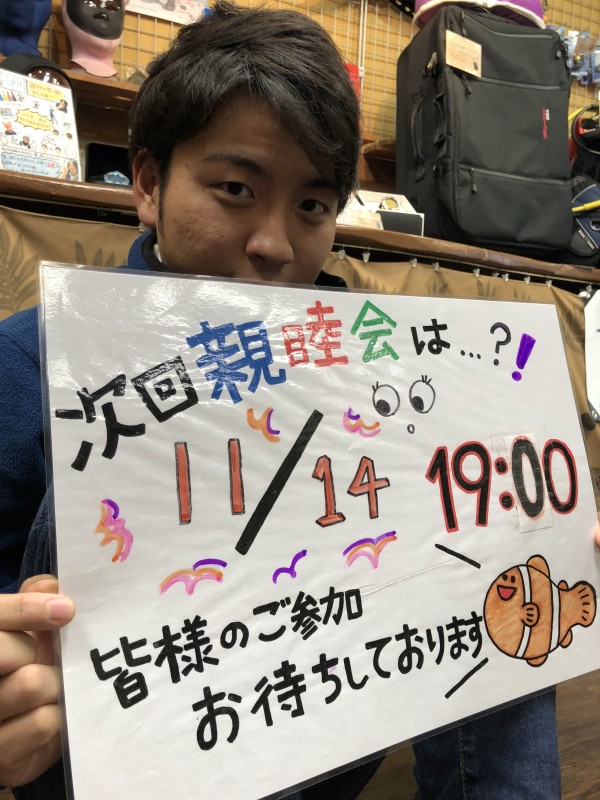 次回親睦会は…?!
11/14 19:00
皆様のご参加
お待ちしております